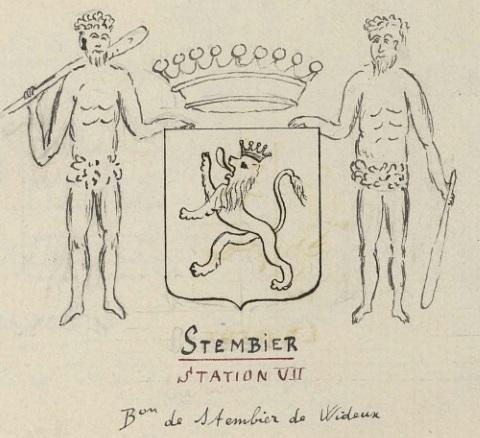 STEMBIER
STATION VII
Bon de Stembier de Wideux